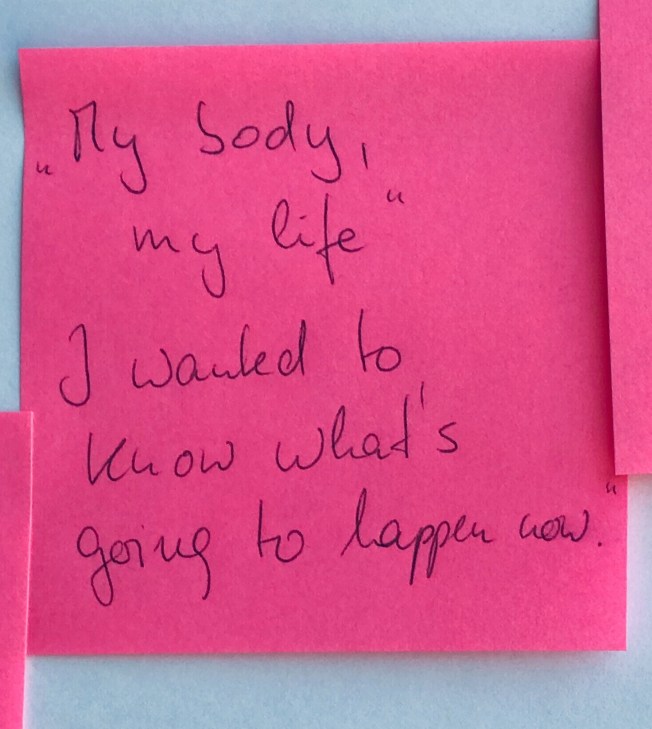 „My body,
my life“
I wanted to
know what's
going to happen now.“